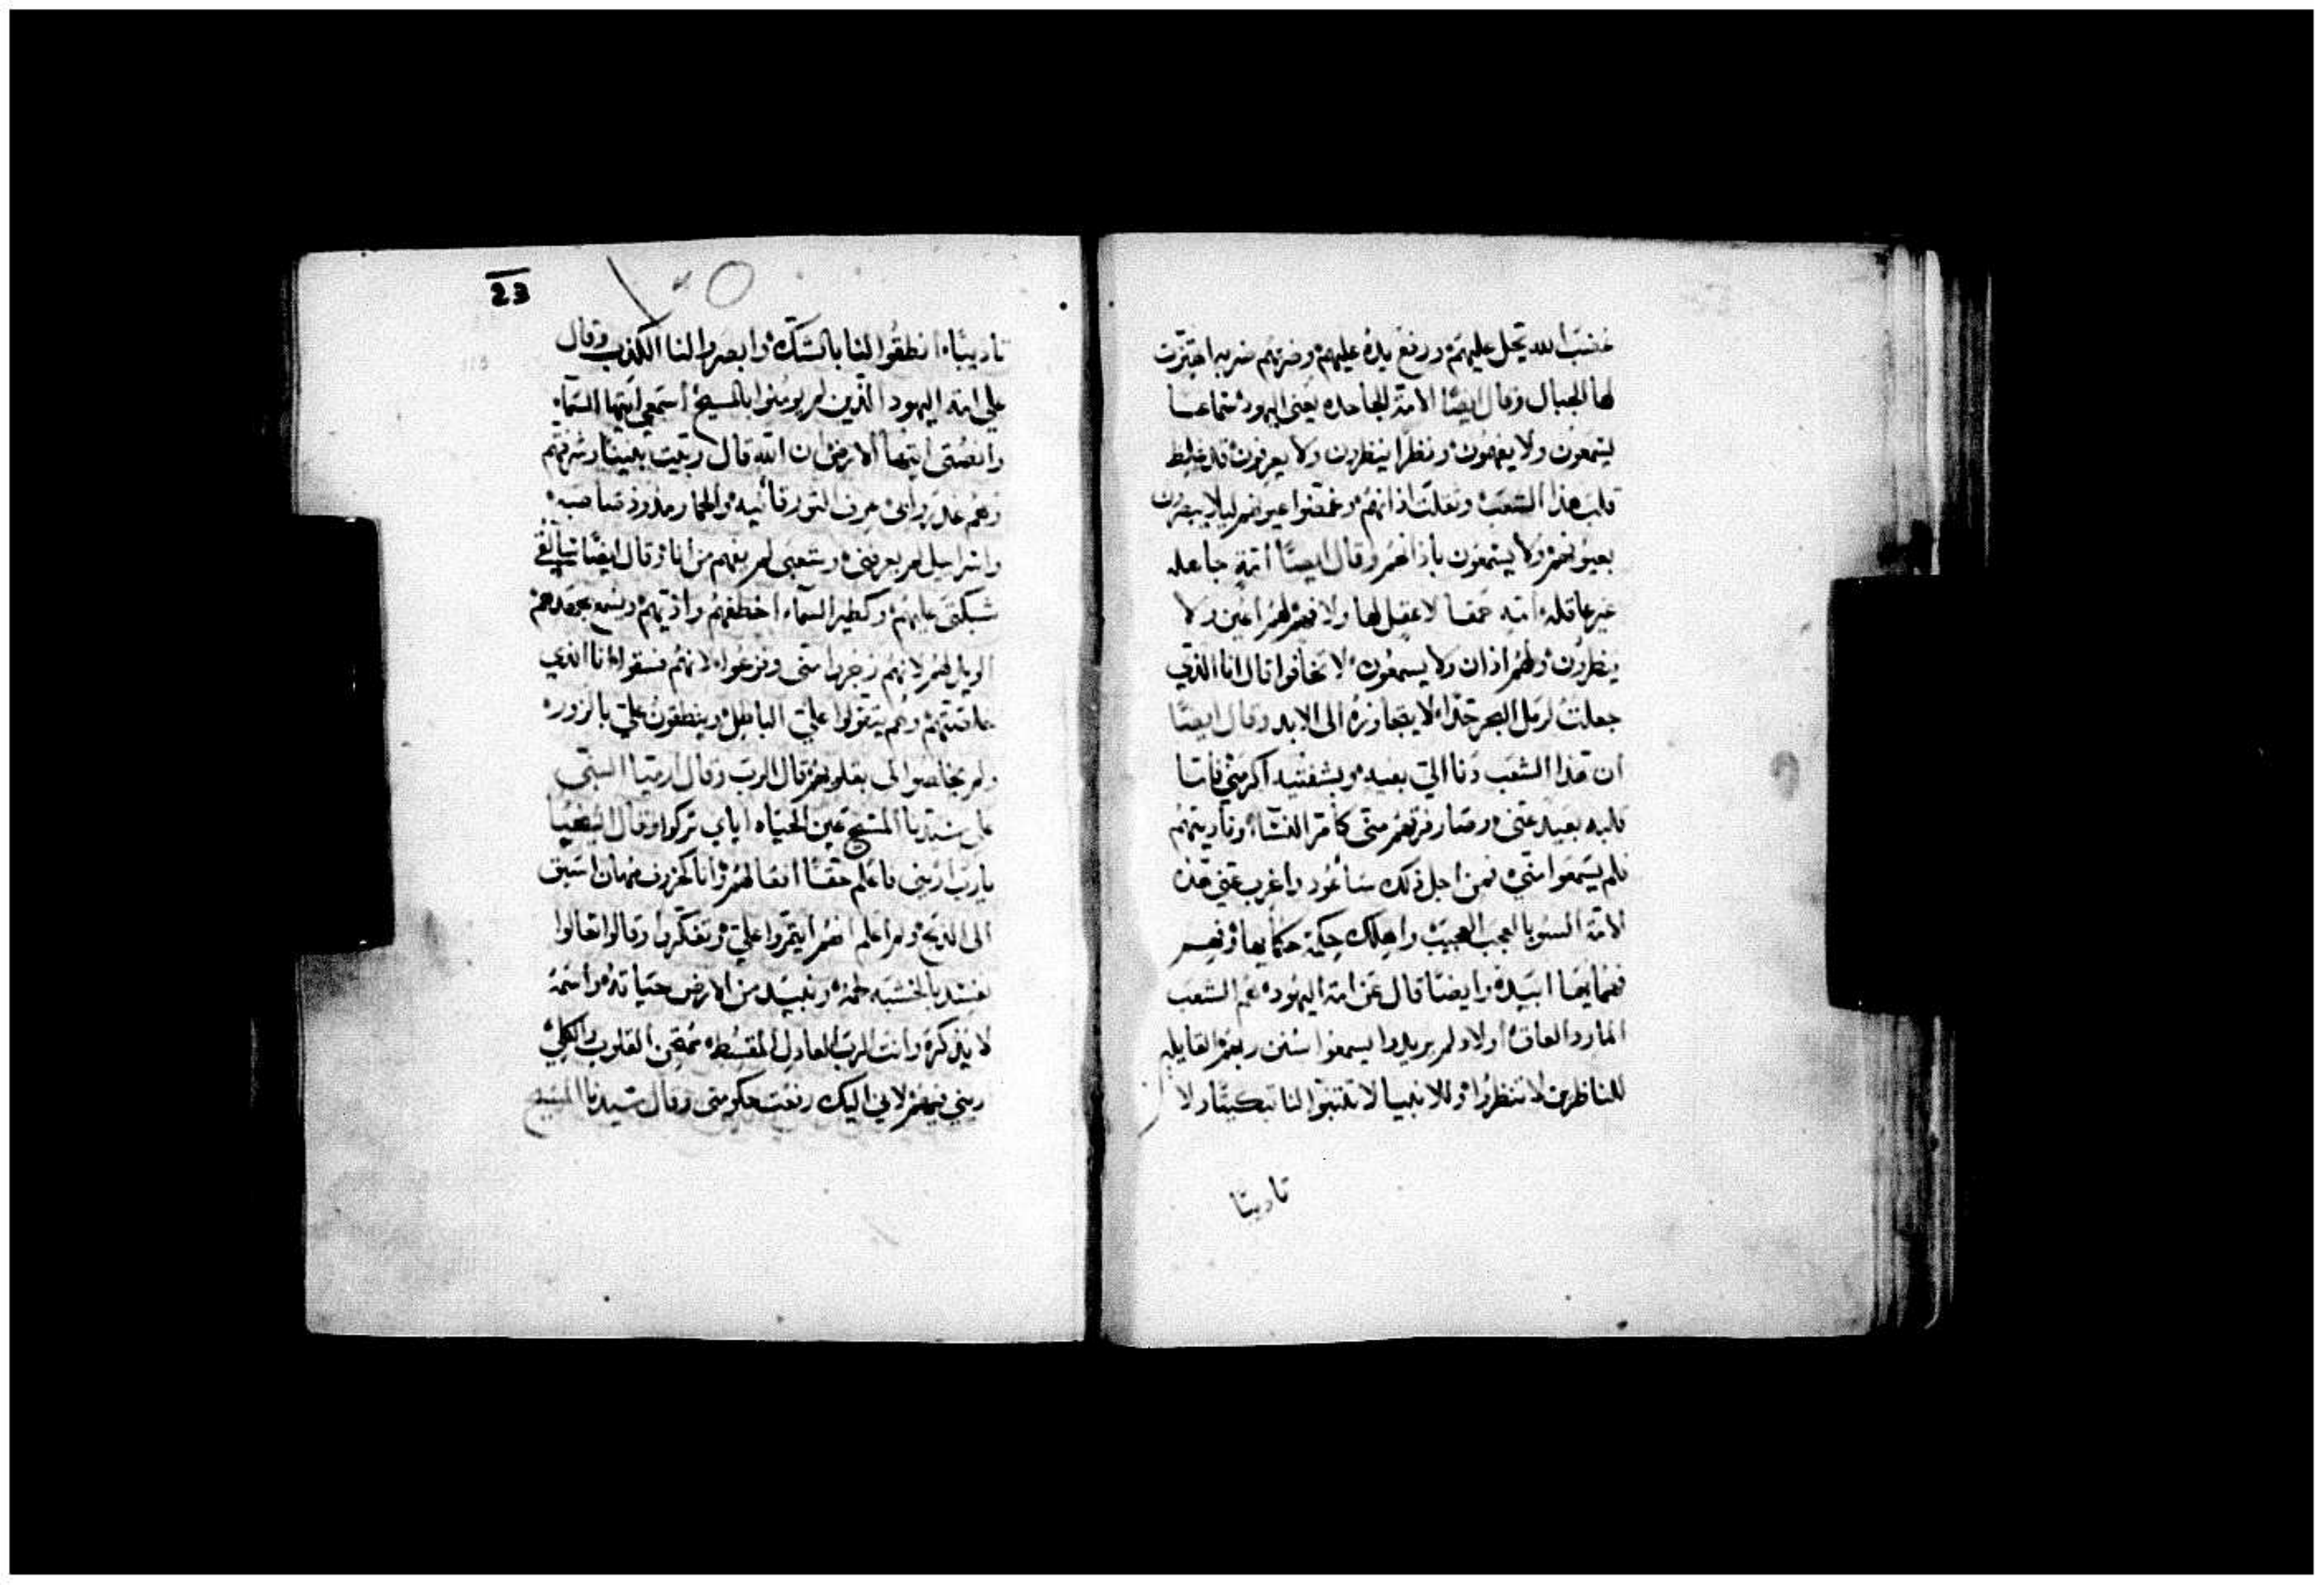 فغضب الله يحل عليهم ورفع يده عليهم وضربهم ضربه اهتزت
لها الجبال وقال ايضًا الامة الجاحده يعني اليهود سماعا
يسمعون ولا يفهمون ونظرا ينظرون ولا يعرفون قد غلظ
قلب هذا الشعب وثقلت اذانهم وغمضوا عيونهم ليلا يبصرون
بعيونهم ولا يسمعون باذانهم وقال ايضًا امة جاهله
غير عاقله امه حمقا لا عقل لها ولا فهم لهم اعين ولا
ينظرون ولهم اذان ولا يسمعون لا تخافوا قال انا الذي
جعلت لرمل البحر حدا لا يتجاوزه الى الابد وقال ايضًا
ان هذا الشعب دنا الي بفيه وبشفتيه اكرمني فاما
قلبه بعيد عني وصار فزعهم مني كأمر النساء وناديتهم
فلم يسمعوا مني فمن اجل ذلك سأعود واغرب عني هذه
الامة السو بالعجب العجيب واهلك حكمة حكمايها وفهم
فهمايها ابيده وايضًا قال عن امة اليهود هم الشعب
المارد العاق اولاد لم يريدوا يسمعوا سنن ربهم القايله
للناظرين لا تنظروا وللانبيا لا تتنبوا لنا تبكيتًا ولا
تاديبًا
23
تاديبًا انطقوا لنا بالشك وابصروا لنا الكذب وقال
على امة اليهود الذين لم يومنوا بالمسيح استمعي ايتها السماء
وانصتي ايتها الارض ان الله قال ربيت بنينًا وشرفتهم
وهم غدروا بي عرف الثور قانيه والحمار مذود صاحبه
واسراييل لم يعرفني وشعبي لم يفهم من انا وقال ايضًا سالقي
شبكتي عليهم وكطير السماء اخطفهم واذيتهم
الويل لهم لانهم زجروا مني وفزعوا لانهم فسقوا انا الذي
عاتقتهم وهم يتقولوا علي الباطل وينطقون علي بالزور
ولم يخلصوا لي بقلوبهم قال الرب وقال ارميا النبي
على سيدنا المسيح عين الحياه اياي تركوا وقال ايضًا
يارب اريني فاعلم حقًا افعالهم وانا كخروف مهان اسيق
الى الذبح ولم اعلم انهم ايتمروا علي وتفكروا وقالوا تعالوا
نفسد بالخشبه لحمه ونبيد من الارض حياته واسمه
لا يذكره وانت الرب العادل المقسط ممتحن القلوب والكلي
ريني فيهم لاني اليك رفعت حكومتي وقال سيدنا المسيح